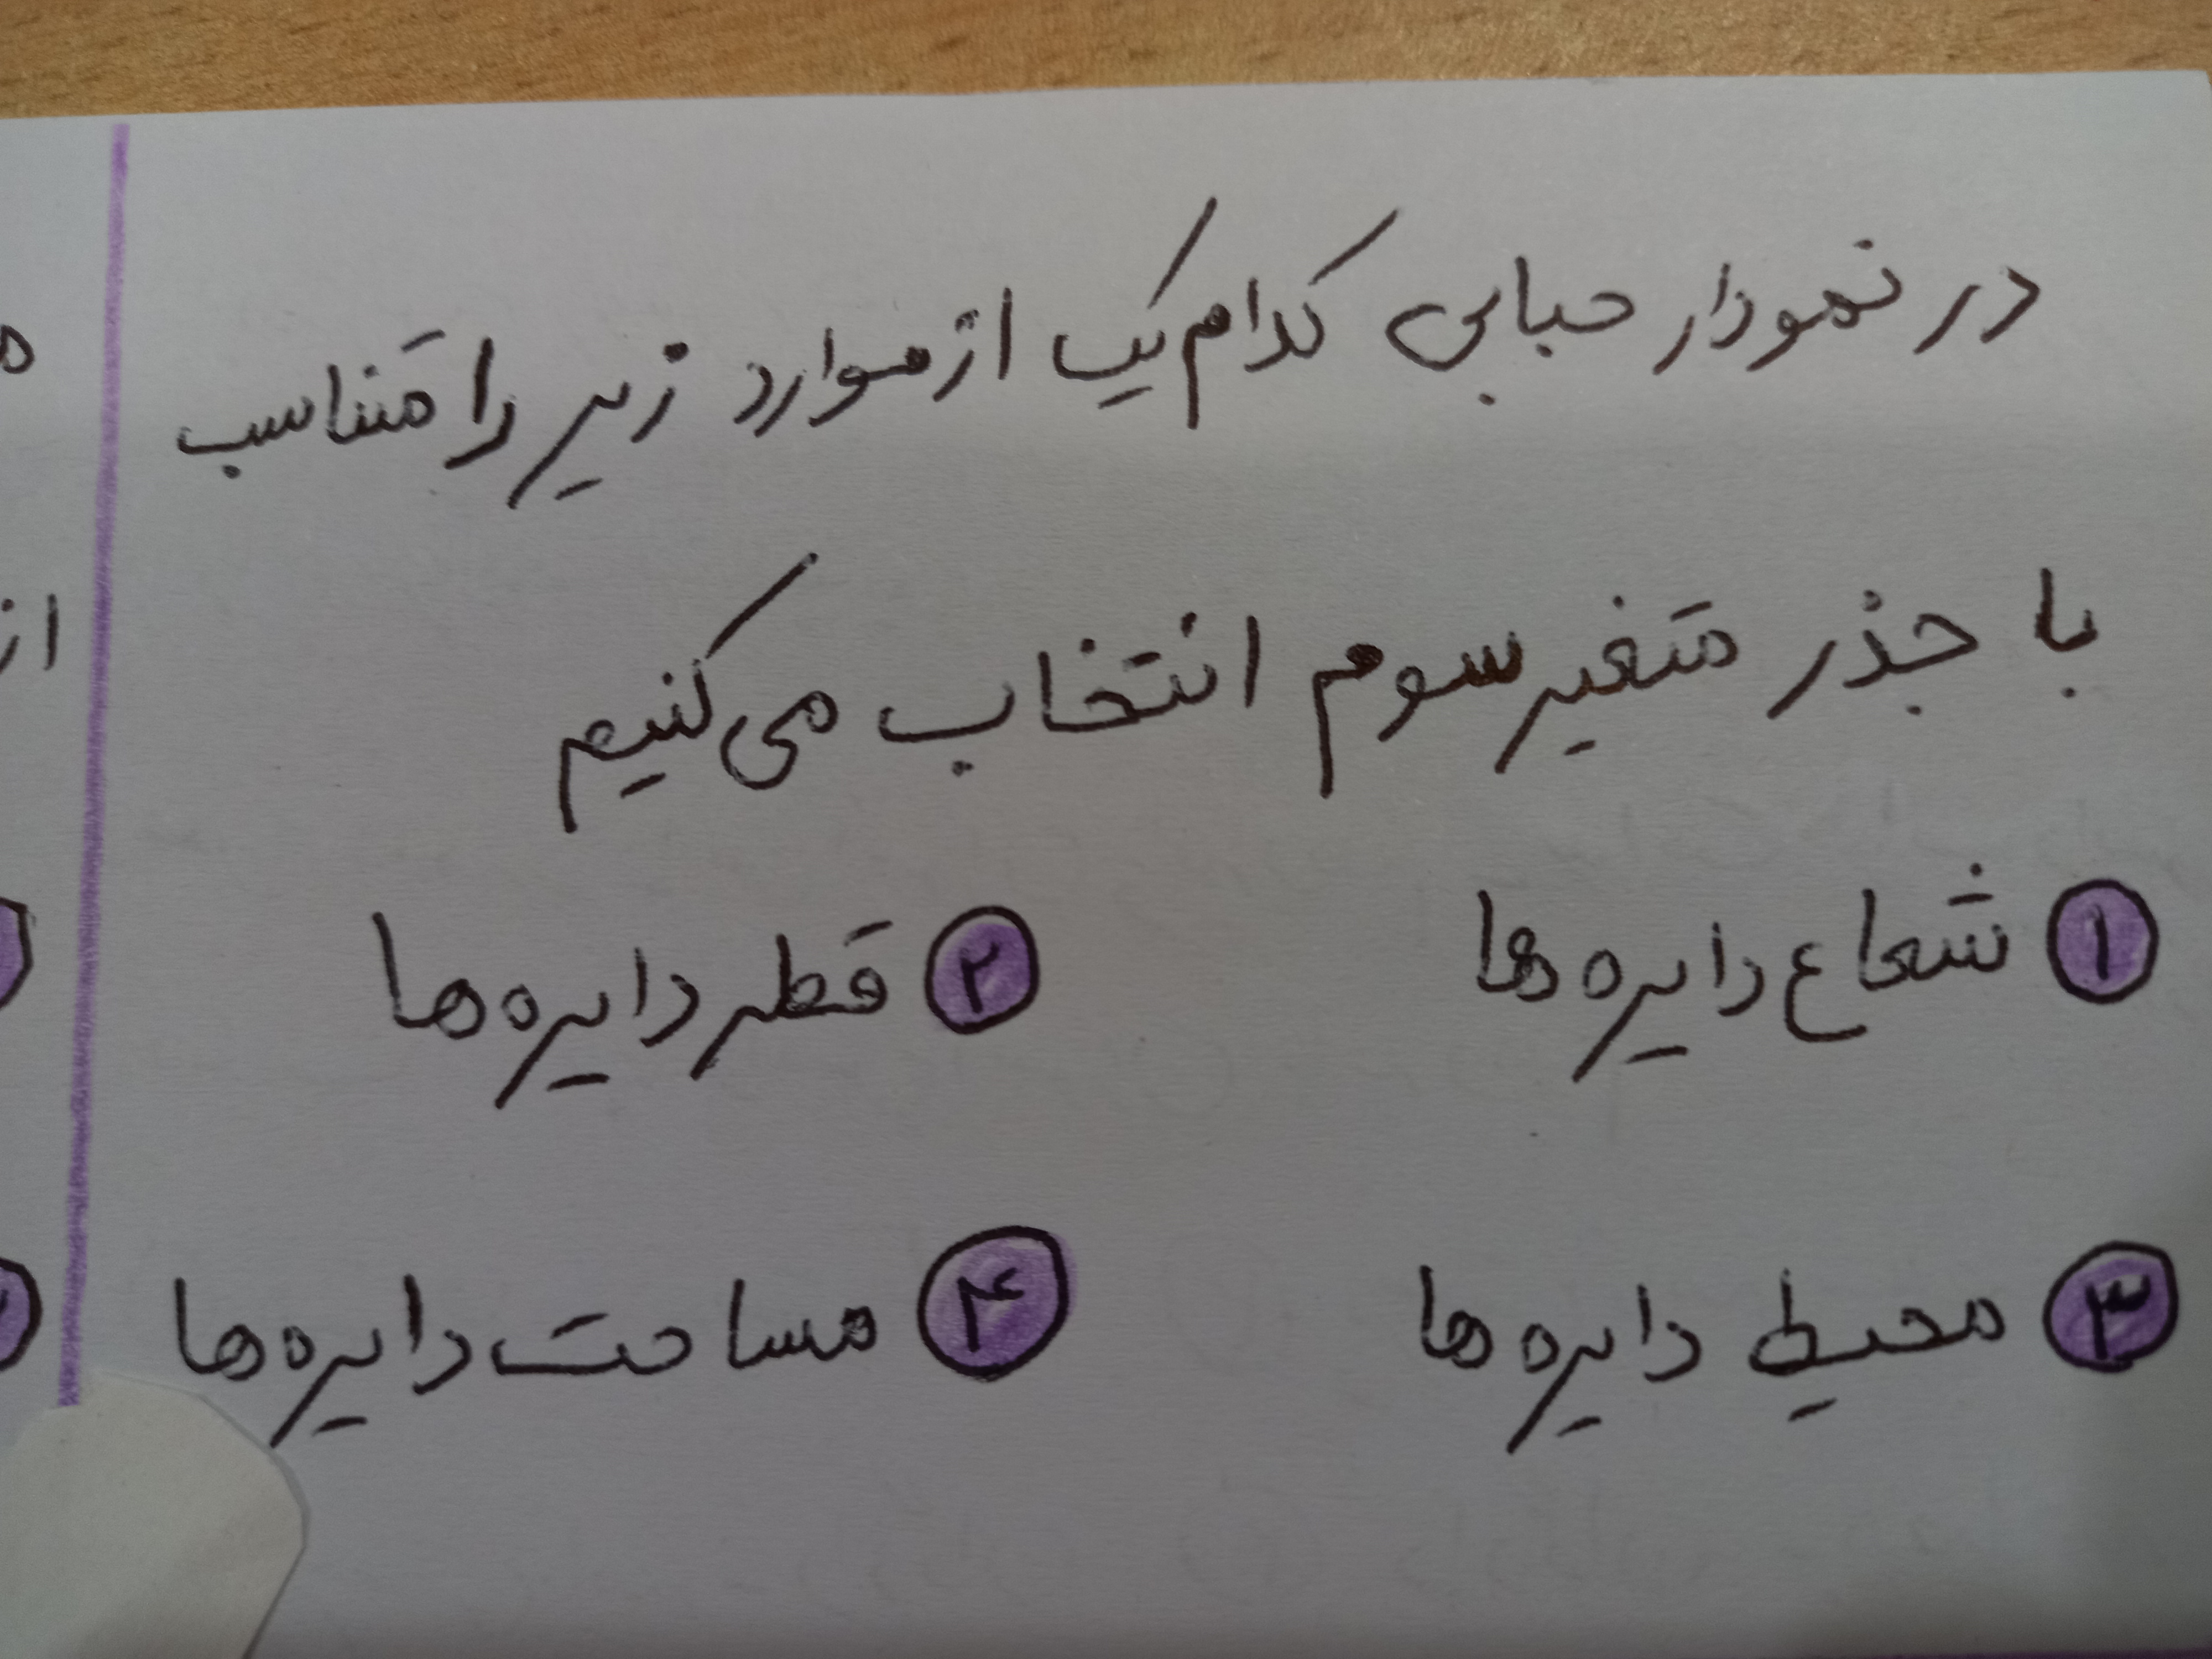 در نمودار حبابی کدام یک از موارد زیر را متناسب
با جذر متغیر سوم انتخاب می کنیم
۱ شعاع دایره ها ۲ قطر دایره ها
۳ محیط دایره ها ۴ مساحت دایره ها